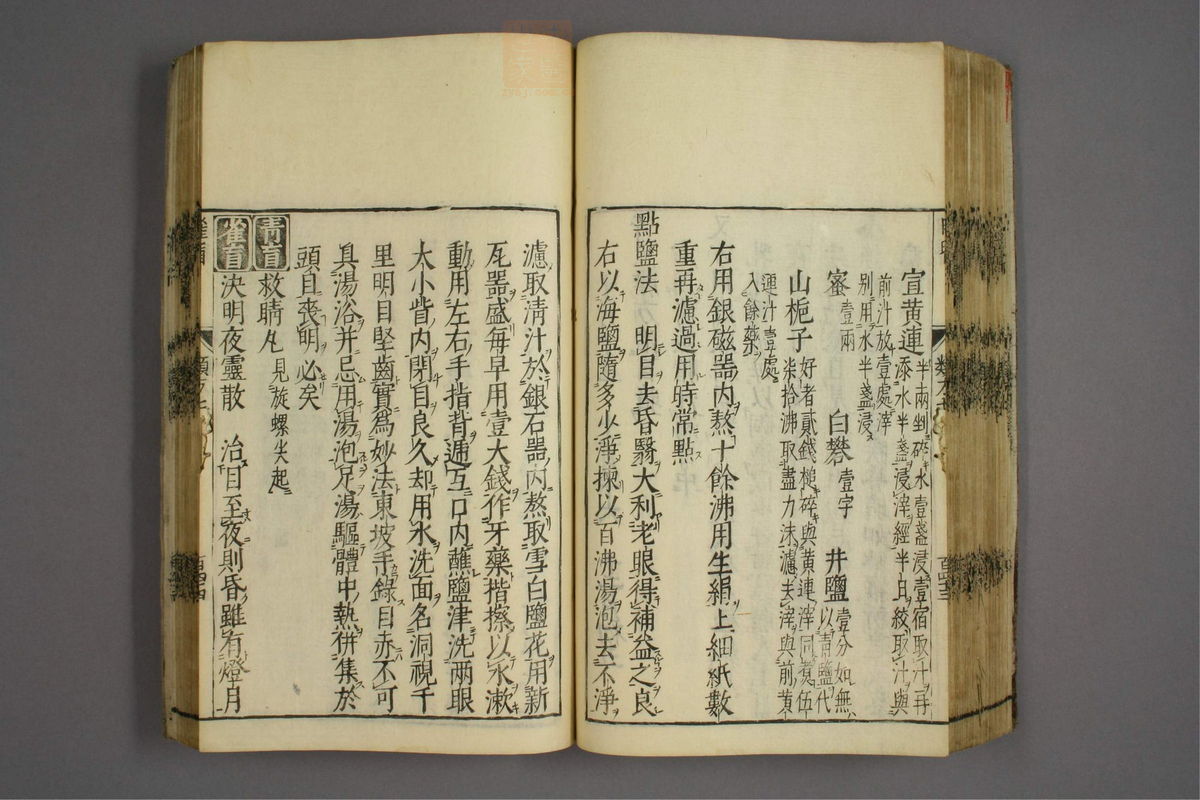 宣黄連 半兩剉碎水壹盞浸壹宿取汁再
添水半盞浸滓經半日絞取汁與
前汁放壹處滓
别用水半盞浸
蜜 壹兩 白礬 壹字 井鹽 壹分如無
以青鹽代
山梔子 好者貳錢槌碎與黄連滓同煮伍
柒拾沸取盡力沫濾去滓與前黄
連汁壹處
入餘藥
右用銀磁器内熬十餘沸用生絹上細紙數
重再濾過用時常點
點鹽法 明目去昏翳大利老眼得補益之良
右以海鹽隨多少淨揀以百沸湯泡去不淨
濾取清汁於銀石器内熬取雪白鹽花用新
瓦器盛每早用壹大錢作牙藥揩擦以水漱
動用左右手指背遞互口内蘸鹽津洗兩眼
大小眥内閉目良久却用水洗面名洞視千
里明目堅齒實爲妙法東坡手錄目赤不可
具湯浴并忌用湯泡足湯驅體中熱併集於
頭目喪明必矣
青盲
雀盲
救睛丸 見旋螺尖起
決明夜靈散 治目至夜則昏雖有燈月